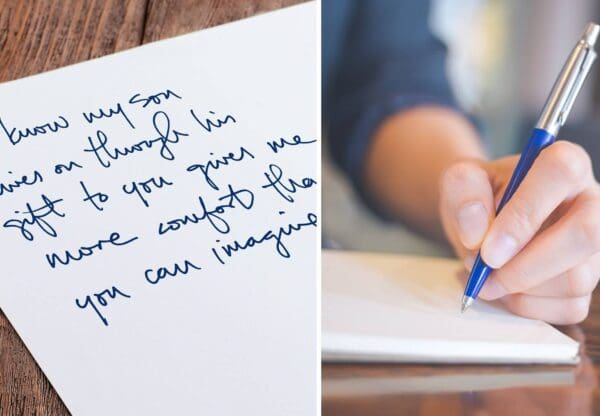 know my son
lives on through his
gift to you gives me
more comfort tha
you can imagine